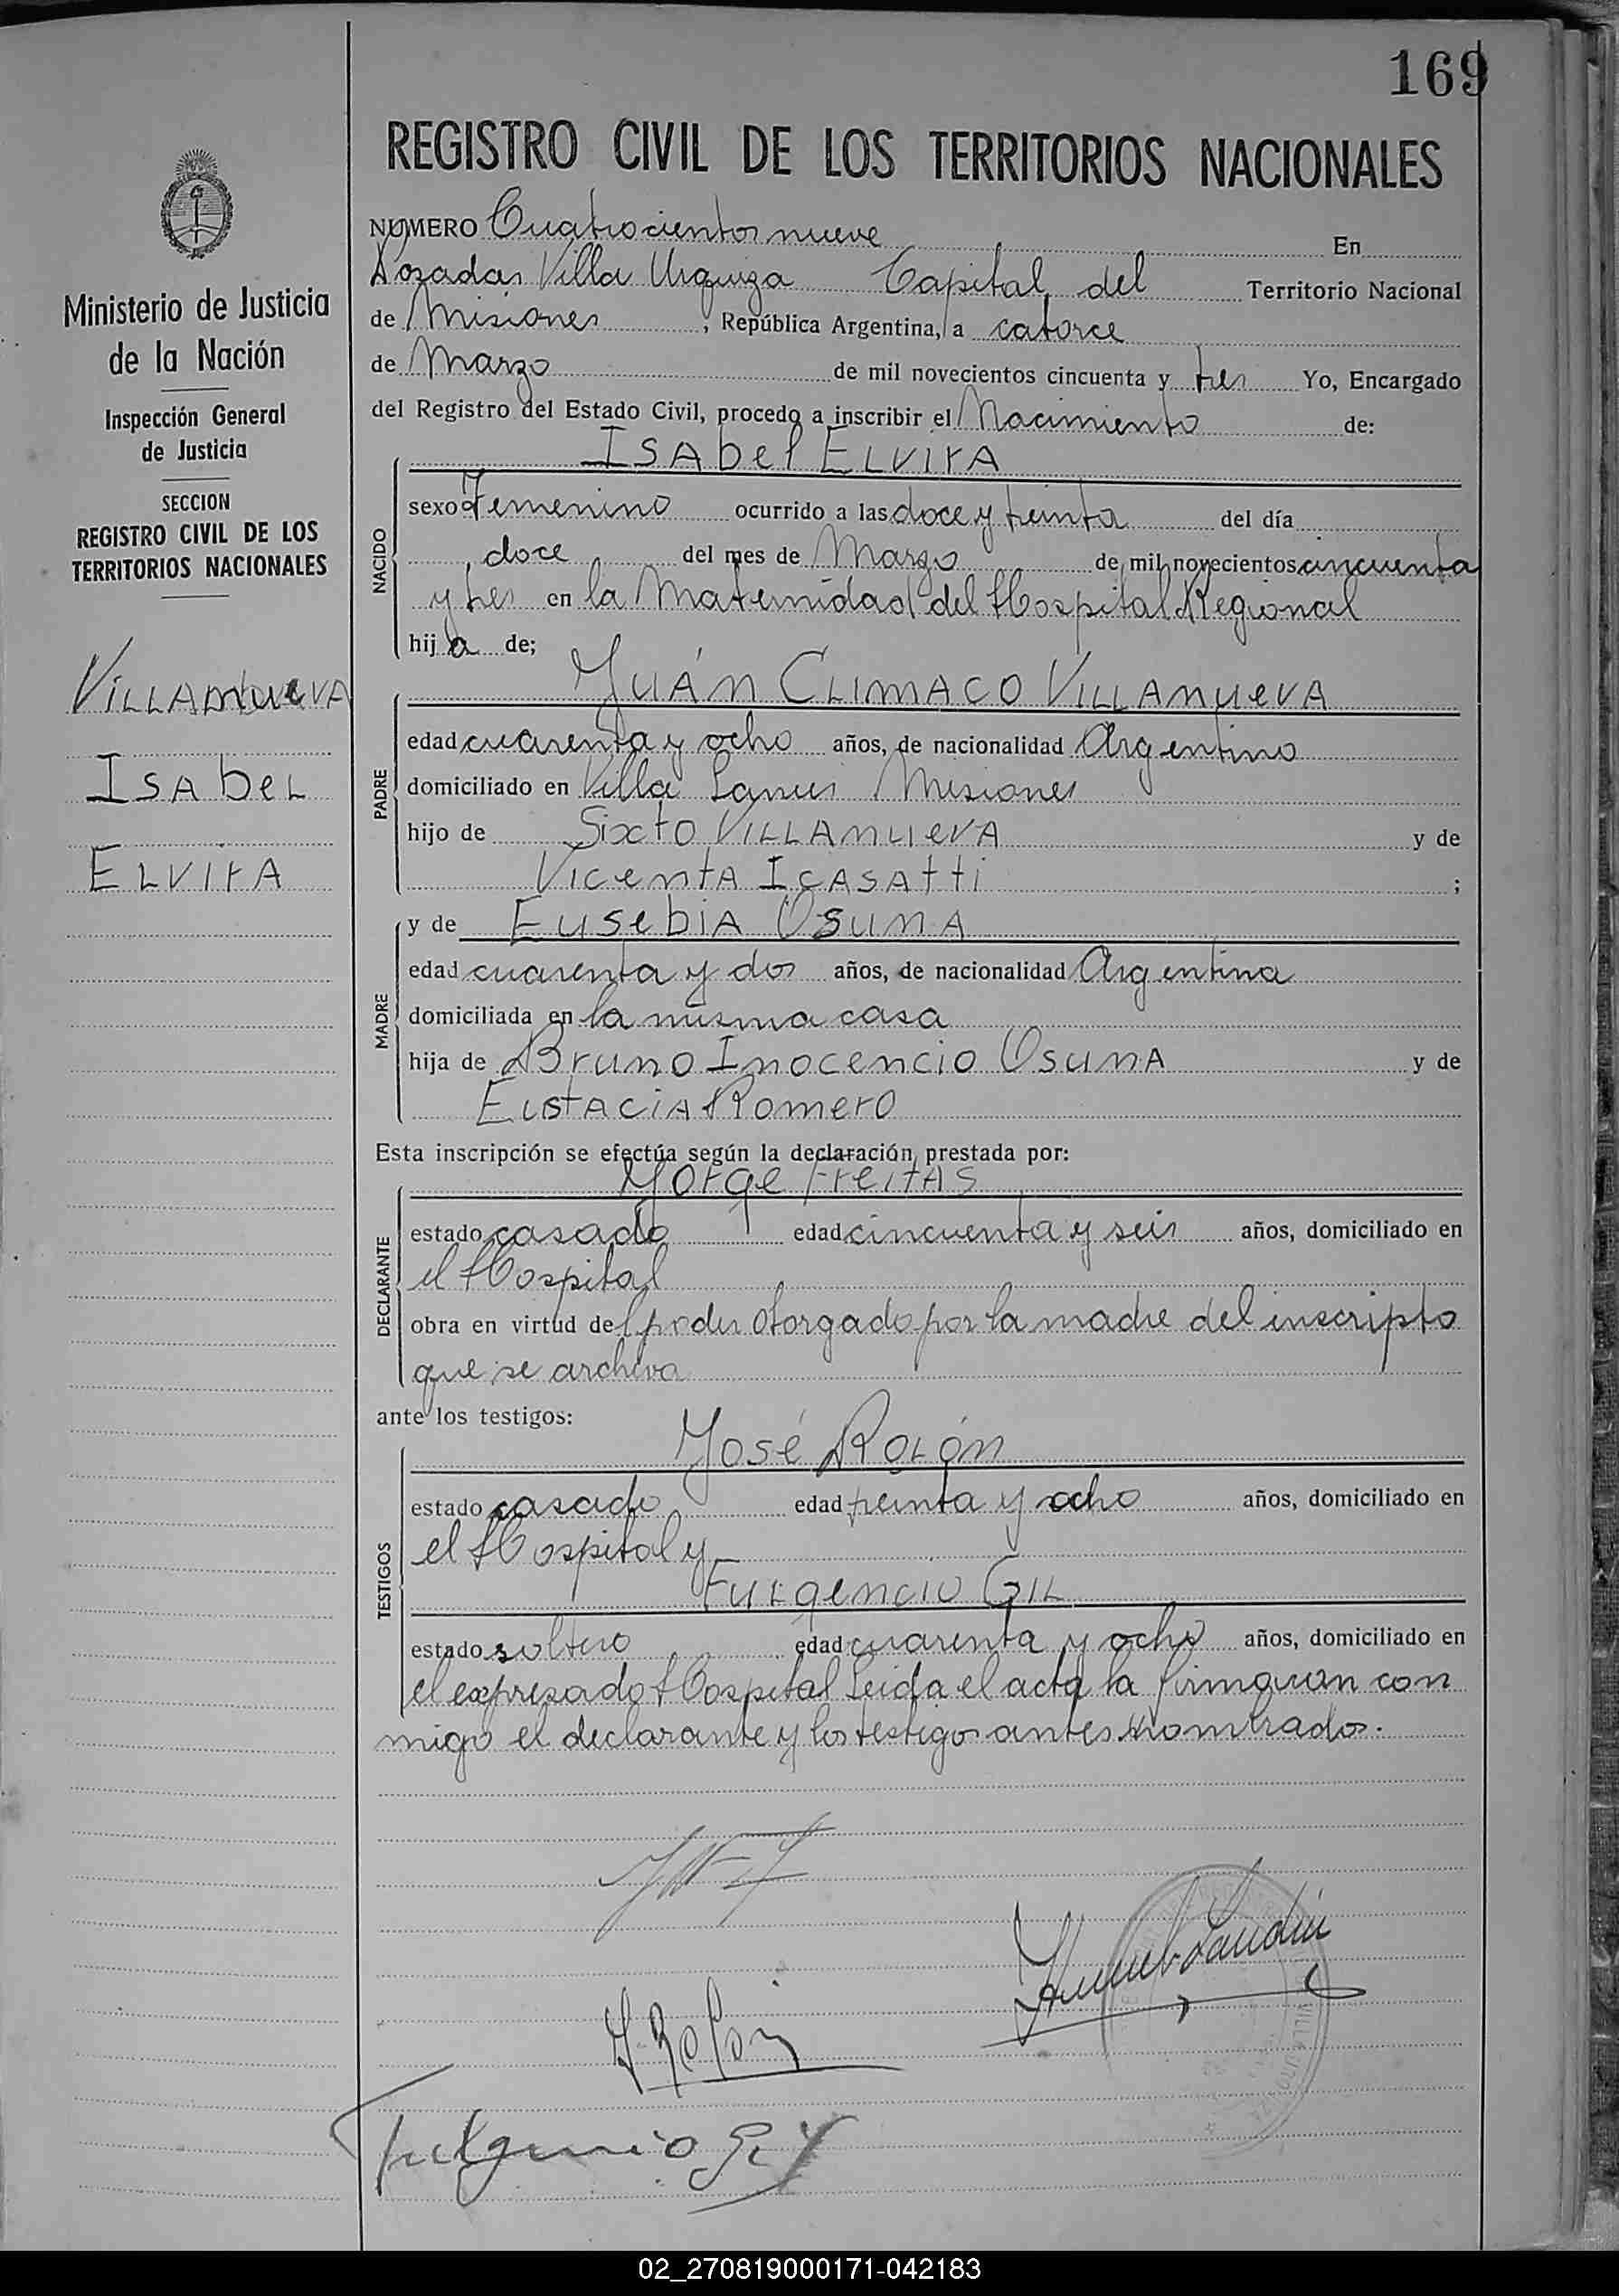 169
REGISTRO CIVIL DE LOS TERRITORIOS NACIONALES
Ministerio de Justicia
de la Nación
Inspección General
de Justicia
SECCION
REGISTRO CIVIL DE LOS
TERRITORIOS NACIONALES
VILLAnueVA
ISAbeL
ELVIrA
NUMERO Cuatrocientos nueve En
Posadas Villa Urquiza Capital del Territorio Nacional
de Misiones, República Argentina, a catorce
de Marzo de mil novecientos cincuenta y tres Yo, Encargado
del Registro del Estado Civil, procedo a inscribir el Nacimiento de:
ISAbel ELVIrA
NACIDO
sexo Femenino ocurrido a las doce y treinta del día
doce del mes de Marzo de mil novecientos cincuenta
y tres en la Maternidad del Hospital Regional
hija de;
JuÁn CLIMACO VILLAnueVA
PADRE
edad cuarenta y ocho años, de nacionalidad Argentino
domiciliado en Villa Lanus Misiones
hijo de Sixto VILLAnueVA y de
VicentA IcASAtti ;
MADRE
y de EusebiA OsunA
edad cuarenta y dos años, de nacionalidad Argentina
domiciliada en la misma casa
hija de Bruno Inocencio OsunA y de
EustAciA Romero
Esta inscripción se efectúa según la declaración prestada por:
Jorge FreitAs
DECLARANTE
estado casado edad cincuenta y seis años, domiciliado en
el Hospital
obra en virtud del poder otorgado por la madre del inscripto
que se archiva
ante los testigos:
José RoLón
TESTIGOS
estado casado edad treinta y ocho años, domiciliado en
el Hospital y
FuLgencio GIL
estado soltero edad cuarenta y ocho años, domiciliado en
el expresado Hospital Leida el acta la firmaran con
migo el declarante y los testigos antes nombrados.
J. Rolon
Fulgencio Gil
02_270819000171-042183